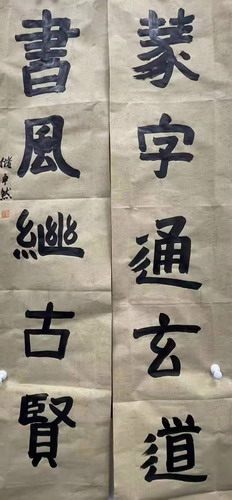 篆字通玄道
書風繼古賢